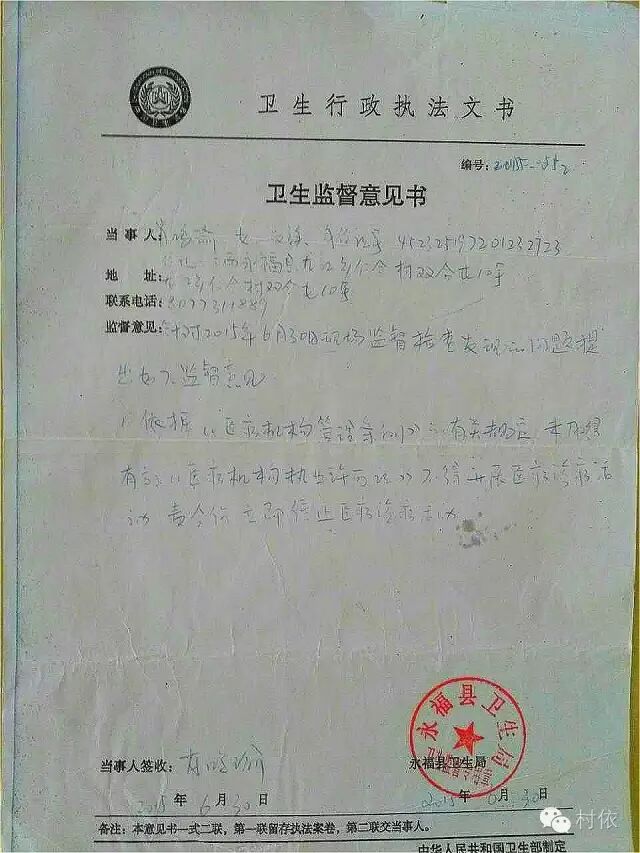 卫生行政执法文书
编号:
卫生监督意见书
当事人: 女 汉族、身份证号
地 址: 乡仁合村双合屯10号
联系电话:
监督意见:针对2015年6月30日现场监督检查发现的问题提
出如下监督意见
1、依据《医疗机构管理条例》的有关规定,未取得
有效《医疗机构执业许可证》不得开展医疗诊疗活
动 责令你立即停止医疗诊疗活动
永福县卫生局
当事人签收: 永福县卫生局
2015年6月30日 2015年6月30日
备注:本意见书一式二联,第一联留存执法案卷,第二联交当事人。
中华人民共和国卫生部制定
村依